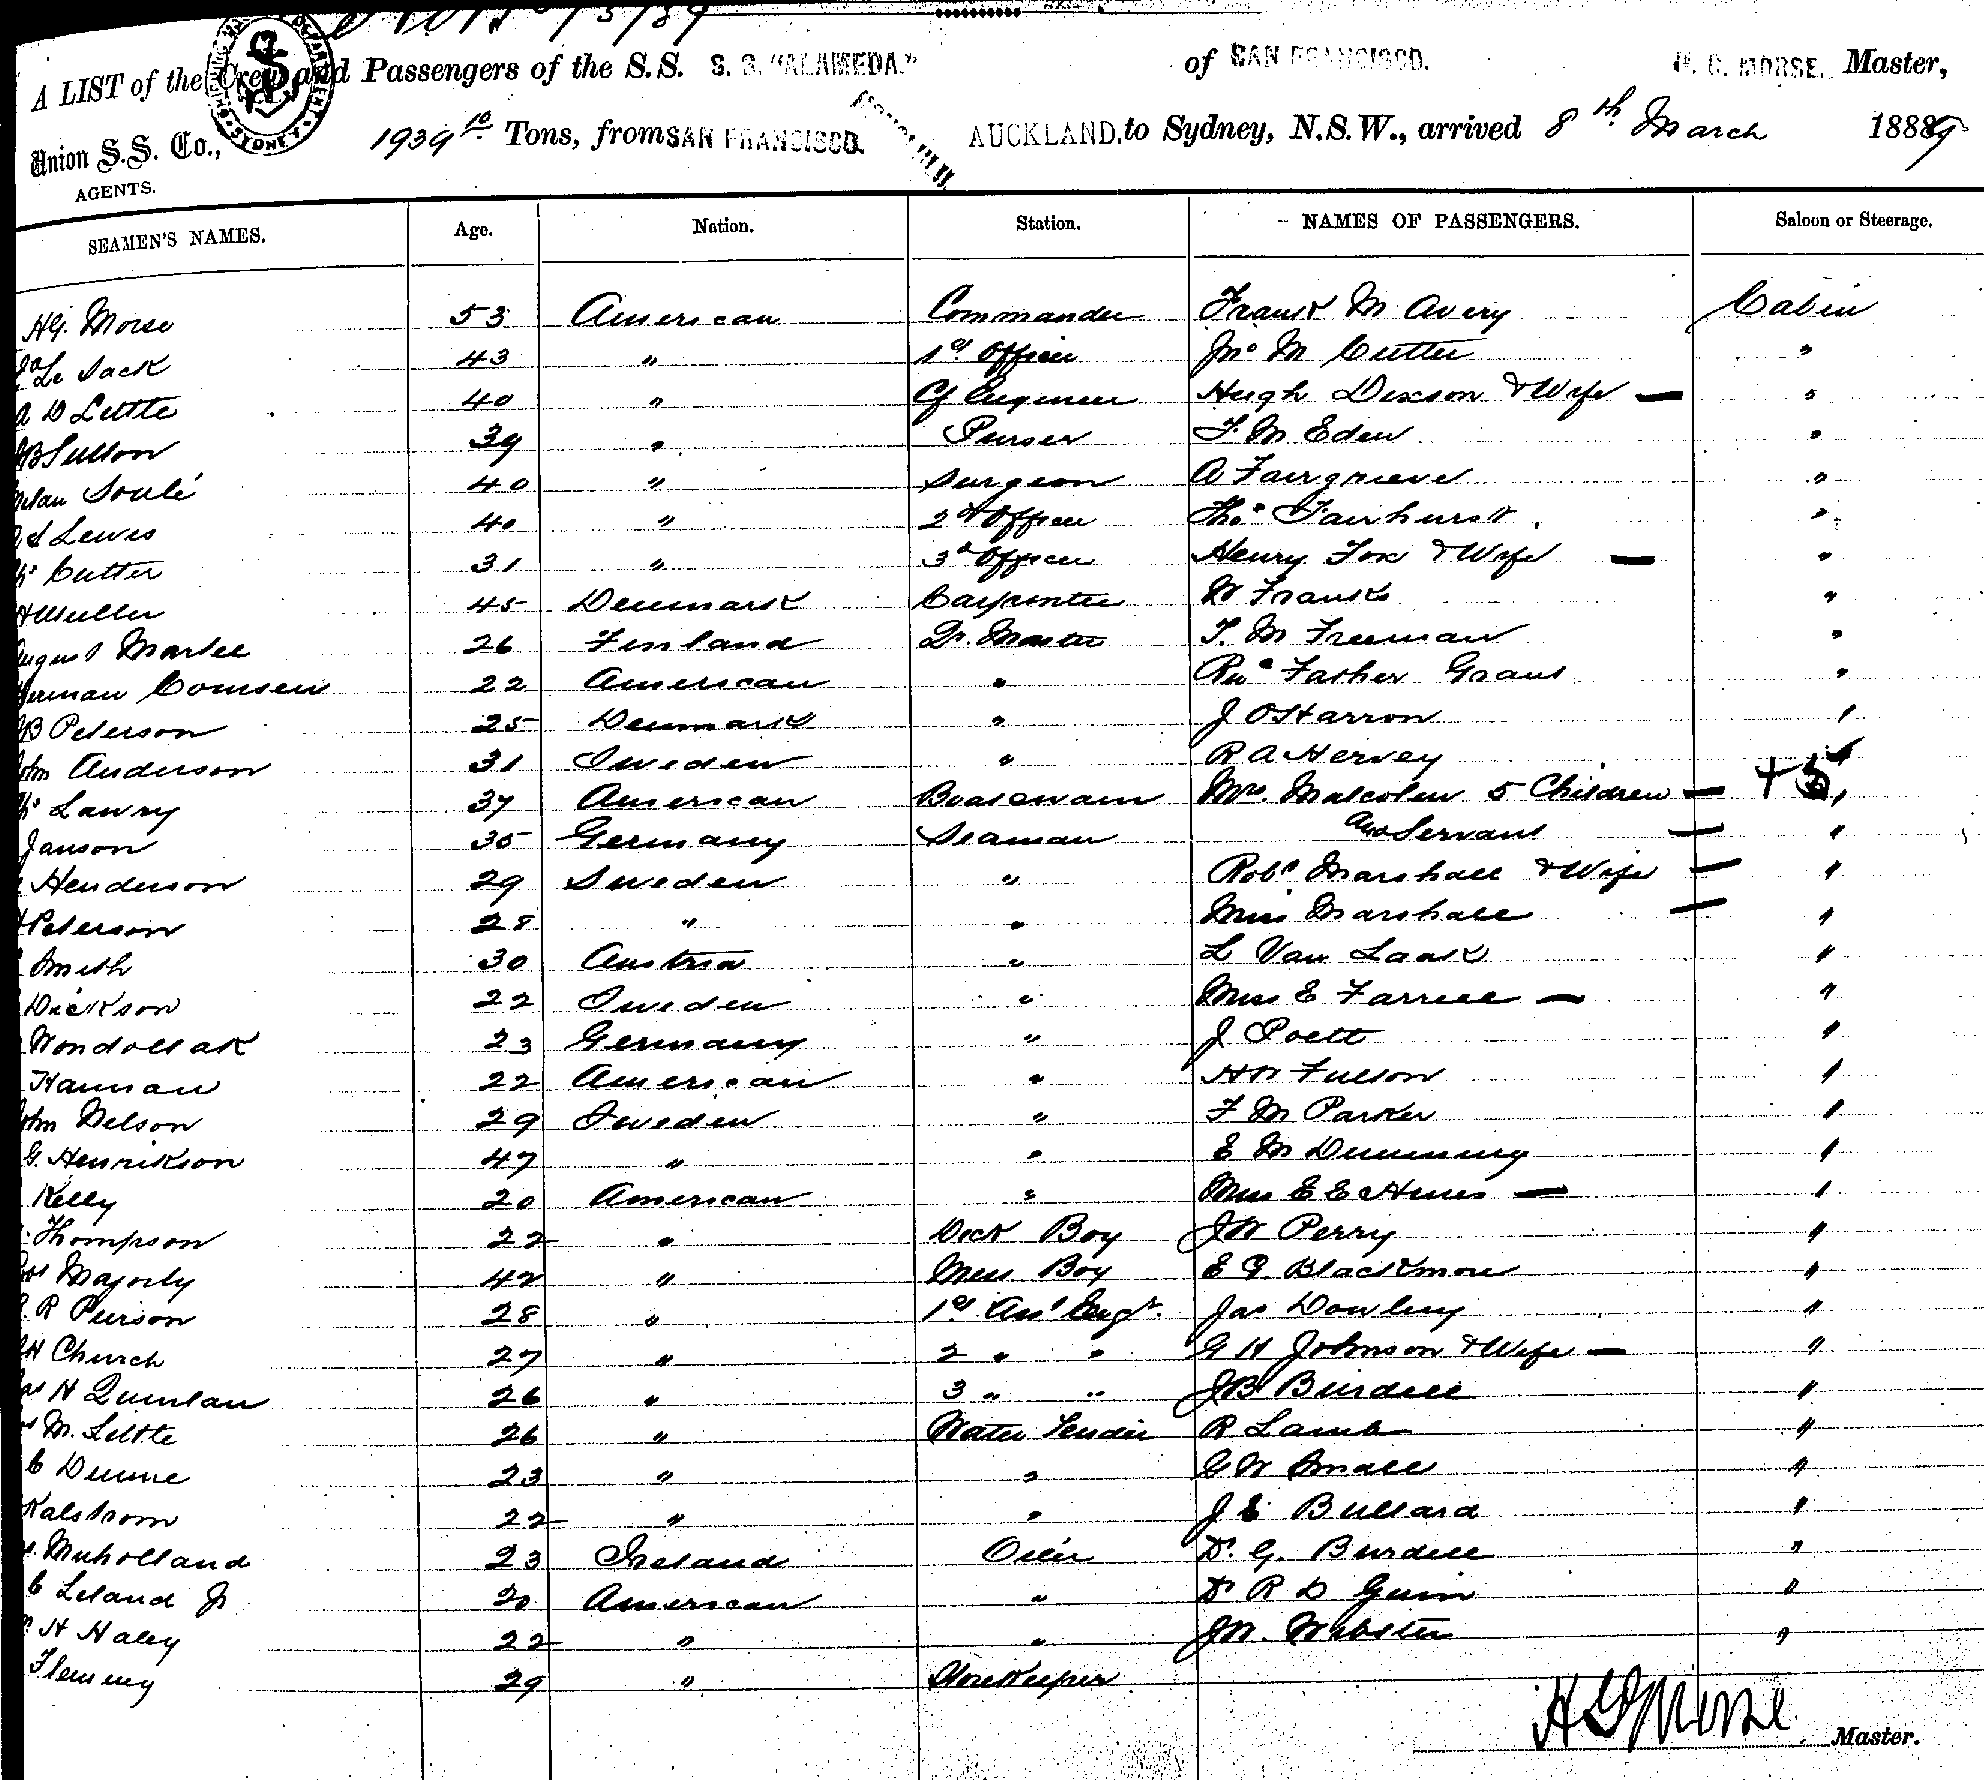 A LIST of the Crew and Passengers of the S.S. S. S. "ALAMEDA." of SAN FRANCISCO. H. G. MORSE, Master,
Union S.S. Co., AGENTS. 1939 10 Tons, from SAN FRANCISCO. HONOLULU AUCKLAND, to Sydney, N.S.W., arrived 8th March 1889
SEAMEN'S NAMES. Age. Nation. Station. NAMES OF PASSENGERS. Saloon or Steerage.
HG. Morse 53 American Commander Frank M Avery Cabin
Le Jack 43 " 1st Officer Jno M Cutter "
A D Little 40 " Cf Engineer Hugh Dixson & Wife — "
Sutton 39 " Purser F. M Eden "
Soulé 40 " Surgeon A Fairgrieve "
S Lewis 40 " 2d Officer Thos Fairhurst "
Cutter 31 " 3d Officer Henry Fox & Wife — "
Muller 45 Denmark Carpenter W Franks "
August Martee 26 Finland Qr. Master T. M Freeman "
Herman Comsen 22 American " Rev Father Grant "
B Peterson 25 Denmark " J O Harron "
John Anderson 31 Sweden " R A Hervey "
Lawry 37 American Boatswain Mrs. Malcolm 5 Children — + 5 "
Janson 35 Germany Seaman and Servant — "
Henderson 29 Sweden " Robt Marshall & Wife — "
Peterson 28 " " Miss Marshall — "
Smith 30 Austria " L Van Laak "
Dickson 22 Sweden " Miss E Farrell — "
Wondollak 23 Germany " J Poett "
Hannan 22 American " H W Fulson "
John Nelson 29 Sweden " F M Parker "
G. Henrikson 47 " " E M Dumming "
Kelly 20 American " Miss E E Hines — "
Thompson 22 " Deck Boy J W Perry "
Majorly 42 " Mess Boy E G Blackmore "
R Peirson 28 " 1st Ass Engr. Jas Dowling "
H Church 27 " 2 " " G H Johnson & Wife — "
H Quinlan 26 " 3 " " J B Burdell "
M. Little 26 " Water Tender R Lamb "
C Dunne 23 " " G W Small "
Kalstrom 22 " " J E Bullard "
Muholland 23 Ireland Oiler Dr. G. Burdell "
C Leland Jr 20 American " Dr R D Gunn "
H Haley 22 " " J W. Webster "
Flemmy 29 " Storekeeper
H G Morse Master.